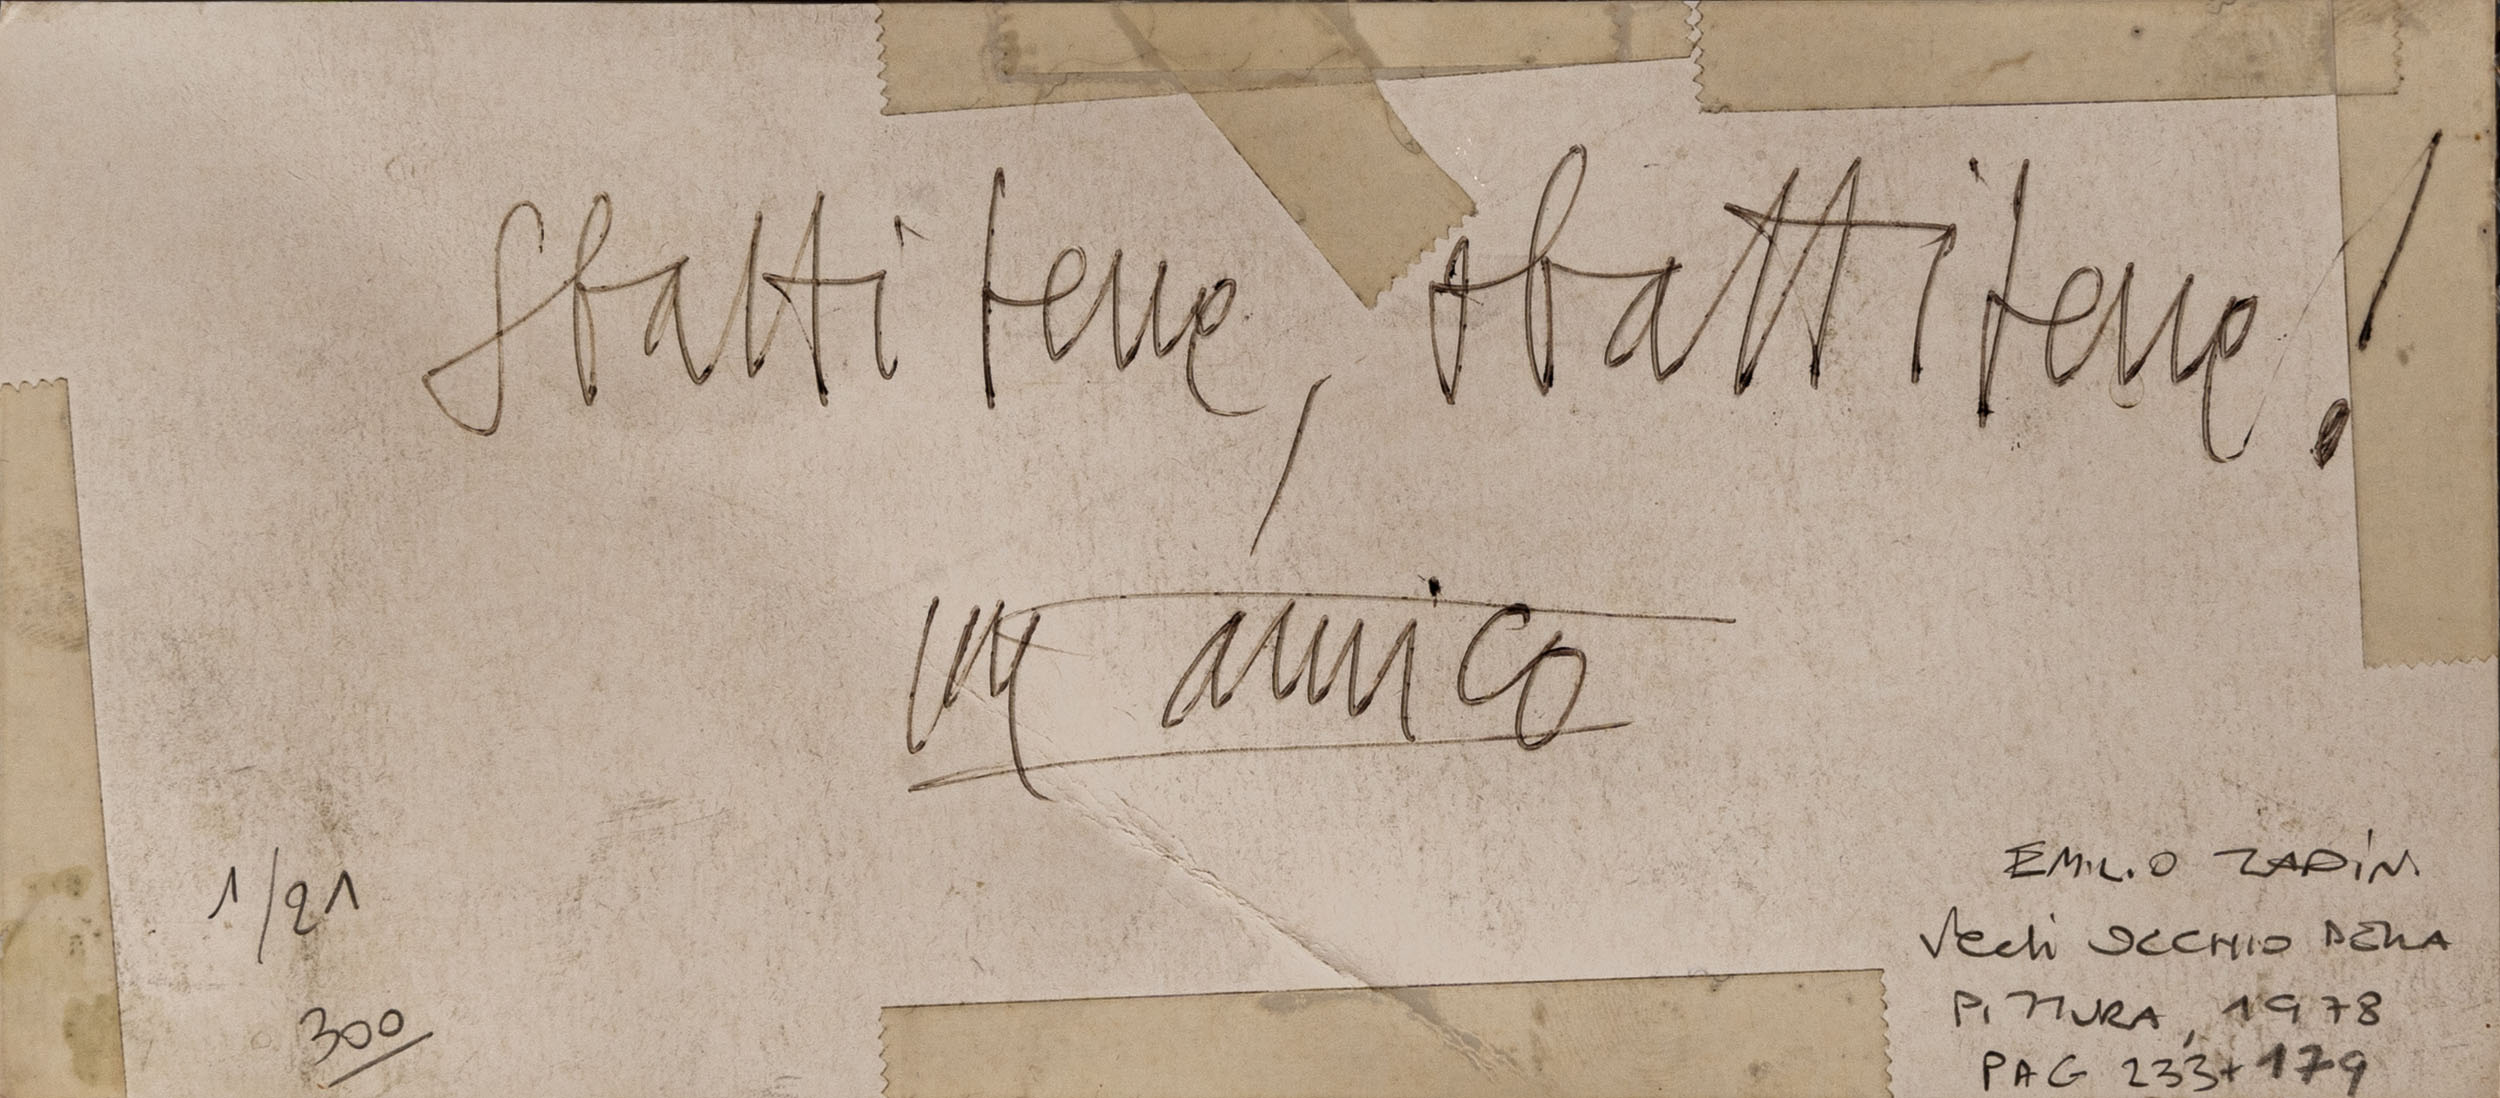 Sbattitene, sbattitene!
un amico
1/21
300
EMILIO ZADIN
Vedi OCCHIO DELLA
PITTURA, 1978
PAG 233+179